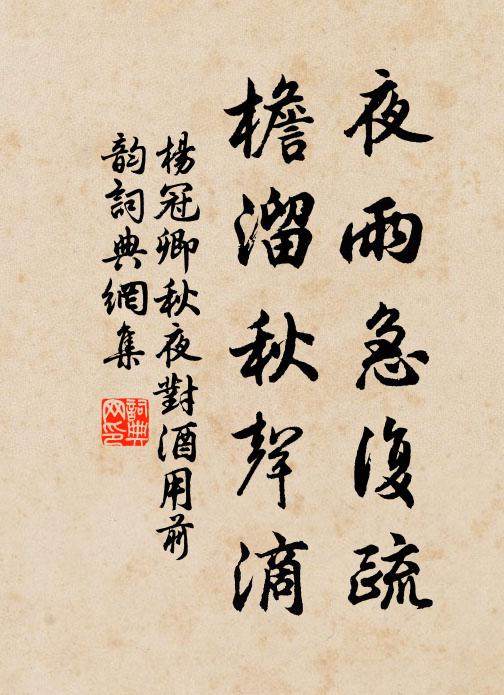 夜雨急復疏
檐溜秋聲滴
楊冠卿秋夜對酒用前
韵詞典網集
詞典
网印